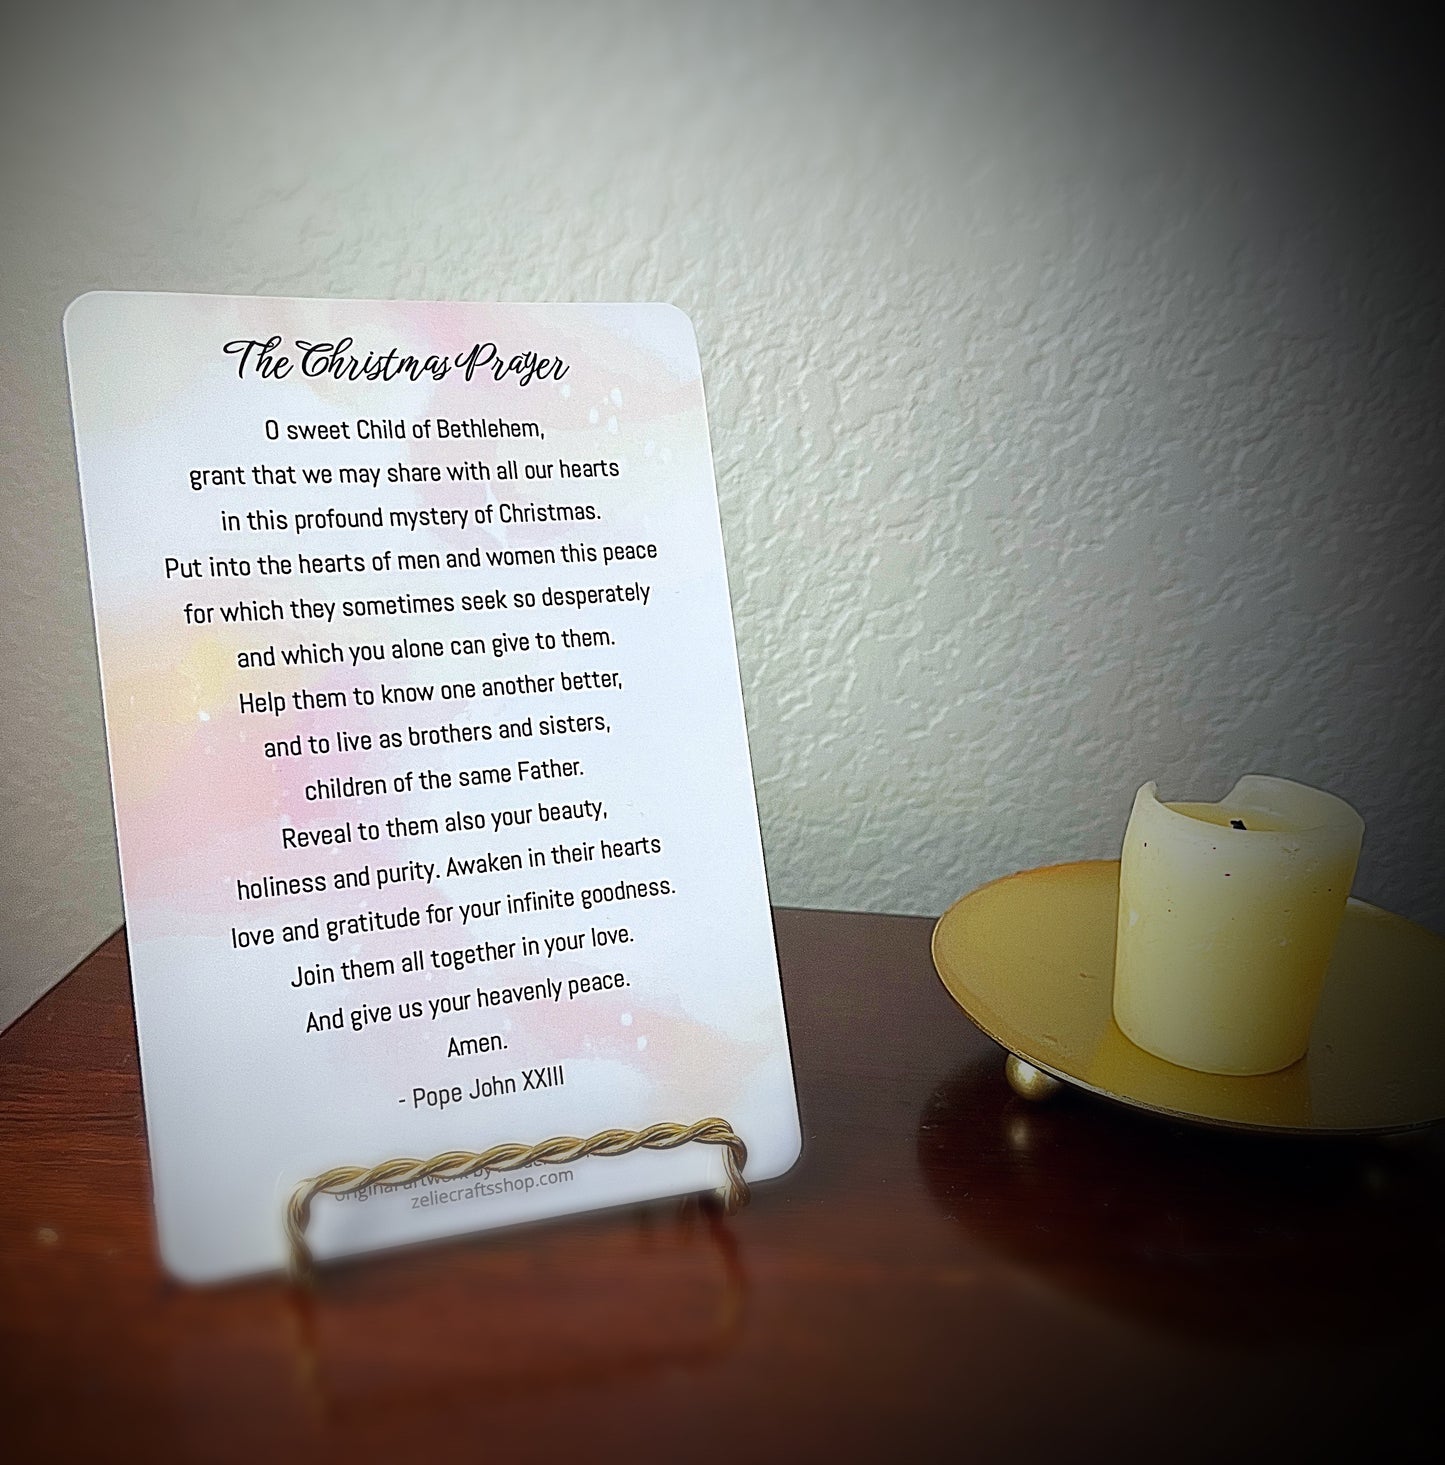 The Christmas Prayer
O sweet Child of Bethlehem,
grant that we may share with all our hearts
in this profound mystery of Christmas.
Put into the hearts of men and women this peace
for which they sometimes seek so desperately
and which you alone can give to them.
Help them to know one another better,
and to live as brothers and sisters,
children of the same Father.
Reveal to them also your beauty,
holiness and purity. Awaken in their hearts
love and gratitude for your infinite goodness.
Join them all together in your love.
And give us your heavenly peace.
Amen.
- Pope John XXIII
original artwork by
zeliecraftsshop.com